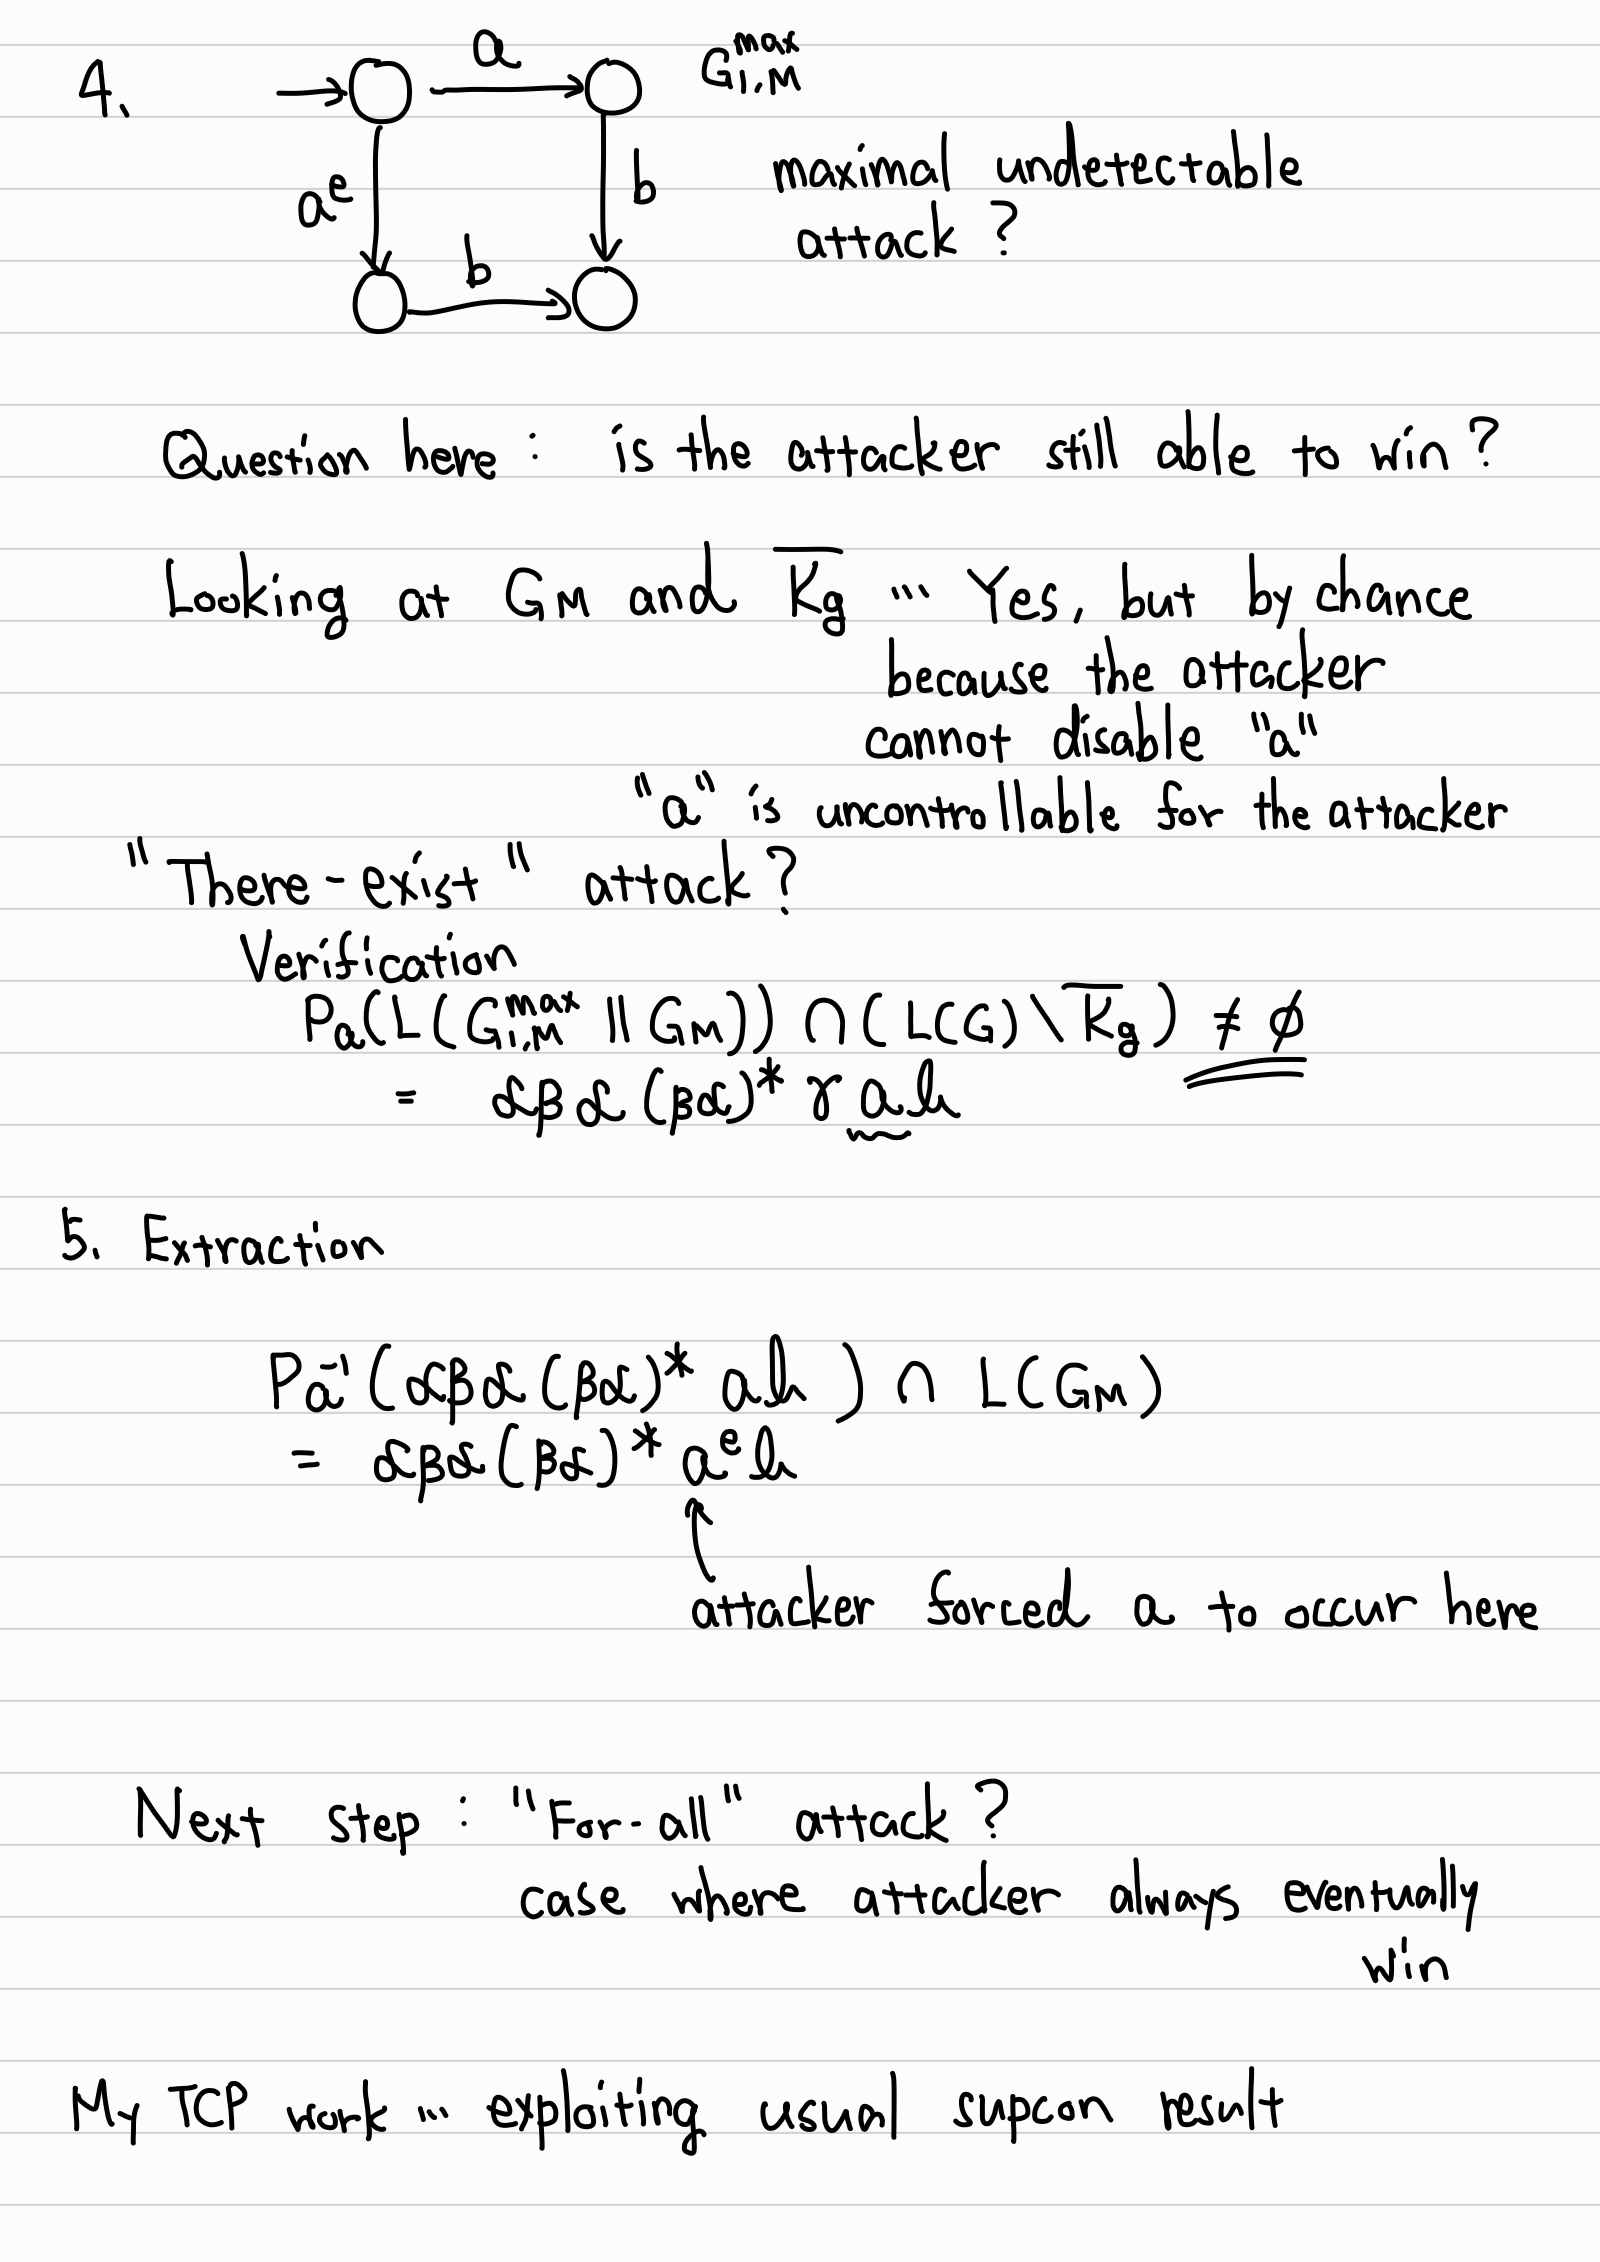 4. a G_{1,M}^{max}
a^e b maximal undetectable
b attack ?
Question here : is the attacker still able to win ?
Looking at G_M and \overline{K_g} ... Yes, but by chance
because the attacker
cannot disable "a"
"a" is uncontrollable for the attacker
"There-exist" attack ?
Verification
P_a(L(G_{1,M}^{max} || G_M)) ∩ (L(G) \ \overline{K_g}) ≠ ∅
= αβα(βα)* γah
5. Extraction
P_a^{-1}(αβα(βα)* ah) ∩ L(G_M)
= αβα(βα)* a^e h
attacker forced a to occur here
Next step : "For-all" attack ?
case where attacker always eventually
win
My TCP work ... exploiting usual supcon result